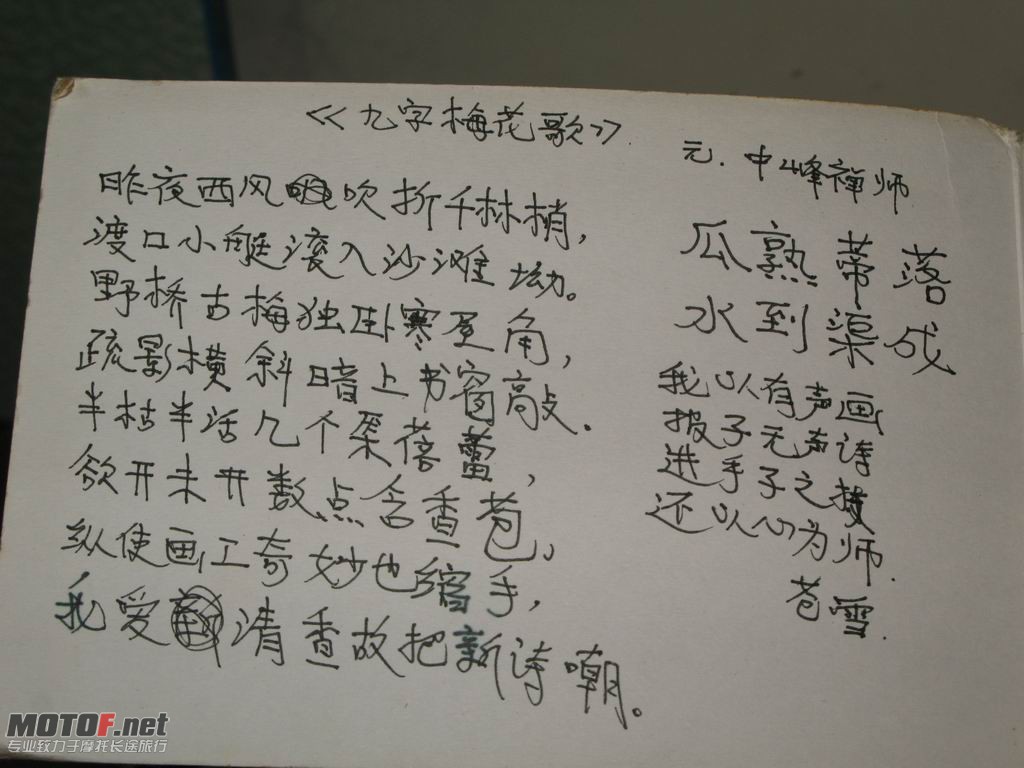 《九字梅花歌》
元.中峰禅师
昨夜西风吹折千林梢,
渡口小艇滚入沙滩坳。
野桥古梅独卧寒屋角,
疏影横斜暗上书窗敲.
半枯半活几个朵蓓蕾,
欲开未开数点含香苞。
纵使画工奇妙也缩手,
我爱清香故把新诗嘲。
瓜熟蒂落
水到渠成
我以有声画
报子无声诗
进手子之
还以心为师.
苍雪.
MOTOF.net
专业致力于摩托长途旅行